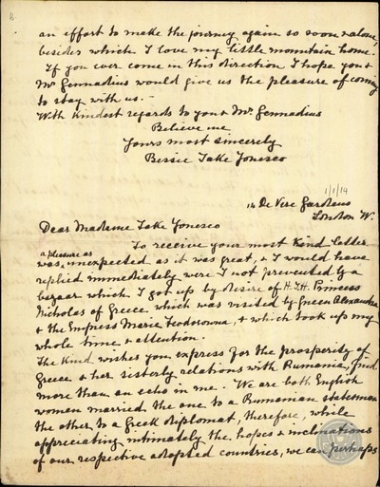 2
an effort to make the journey again so soon alone,
besides which I love my little mountain home.
If you ever come in this direction I hope you &
Mr Gennadius would give us the pleasure of coming
to stay with us. -
With Kindest regards to you & Mr. Gennadius
Believe me
Yours most sincerely
Bessie Take Jonesco
1/1/14
14 De Vere Gardens
London W.
Dear Madame Take Jonesco
To receive your most kind letter
a pleasure as
was unexpected as it was great, & I would have
replied immediately were I not prevented by a
bazaar which I got up by desire of H.I.H. Princess
Nicholas of Greece which was visited by Queen Alexandra
& the Empress Marie Feodorowna, & which took up my
whole time & attention.
The kind wishes you express for the prosperity of
Greece & her sisterly relations with Rumania, find
more than an echo in me. We are both English
women married the one to a Rumanian statesman
the other to a Greek diplomat, therefore, while
appreciating intimately the hopes & inclinations
of our respective adopted countries, we can perhaps